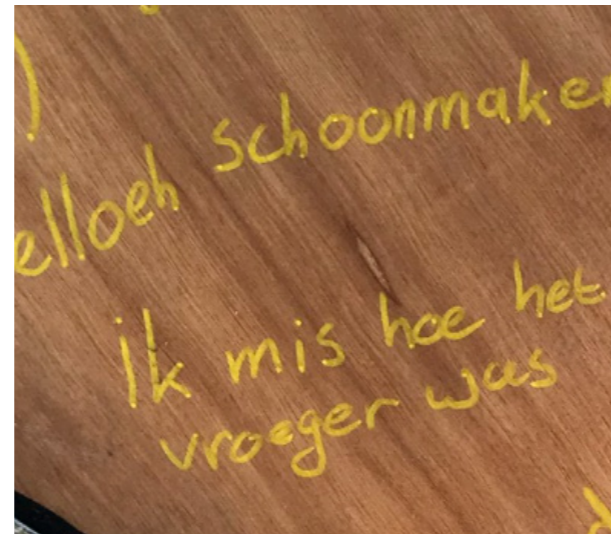 elloeh schoonmake
ik mis hoe het
vroeger was